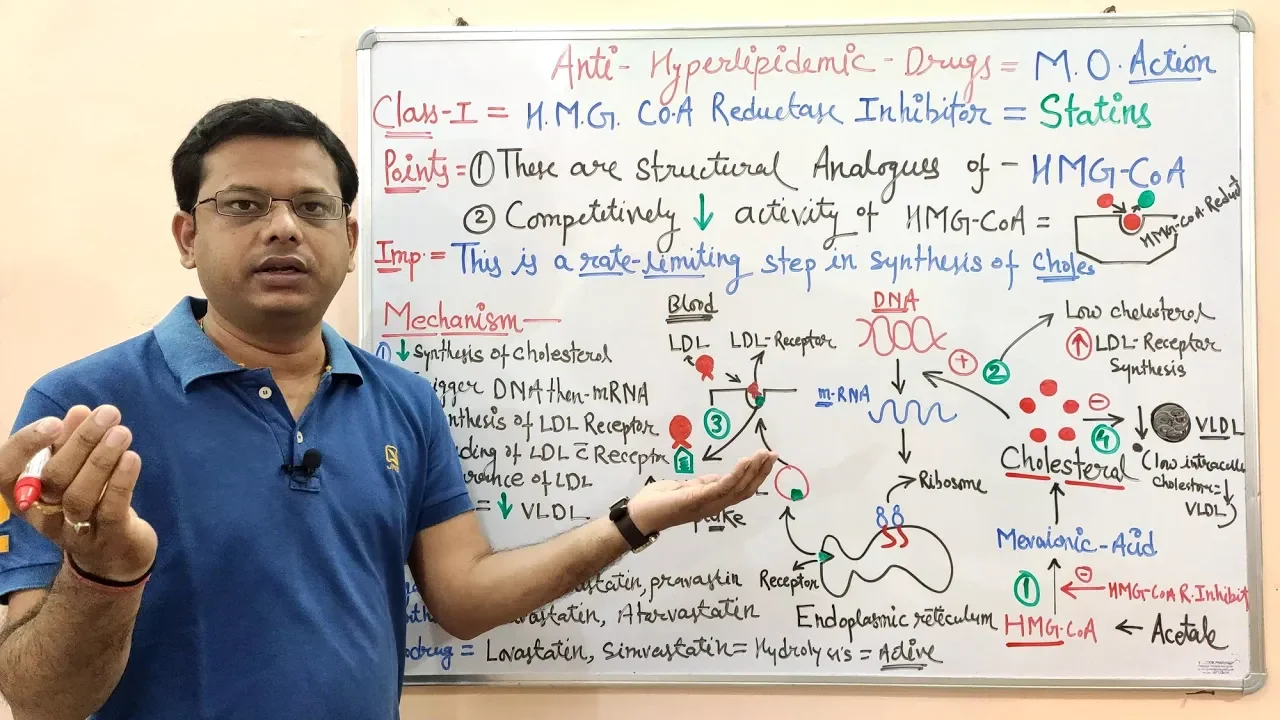 Anti-Hyperlipidemic-Drugs = M.O. Action
Class-I = H.M.G. CoA Reductase Inhibitor = Statins
Points = ① These are structural Analogues of - HMG-CoA
② Competitively ↓ activity of HMG-CoA =
HMG-CoA-Reduct
Imp. = This is a rate-limiting step in synthesis of Choles
Mechanism
① ↓ Synthesis of Cholesterol
igger DNA then mRNA
nthesis of LDL Receptor
ding of LDL c̄ Receptor
rance of LDL
= ↓ VLDL
Blood
LDL LDL-Receptor
③
ake
Receptor
DNA
m-RNA
Ribosome
Endoplasmic reticulum
Low cholesterol
↑ LDL-Receptor
Synthesis
+ ②
⊖
④
↓ VLDL
Clow intracellu
Cholesterol=↓
VLDL
Cholesteral
Mevalonic-Acid
① ⊖ HMG-CoA R.Inhibit
HMG-CoA ← Acetate
astatin, pravastin
vastatin, Atarvastatin
odrug = Lovastatin, Simvastatin = Hydrolysis = Active